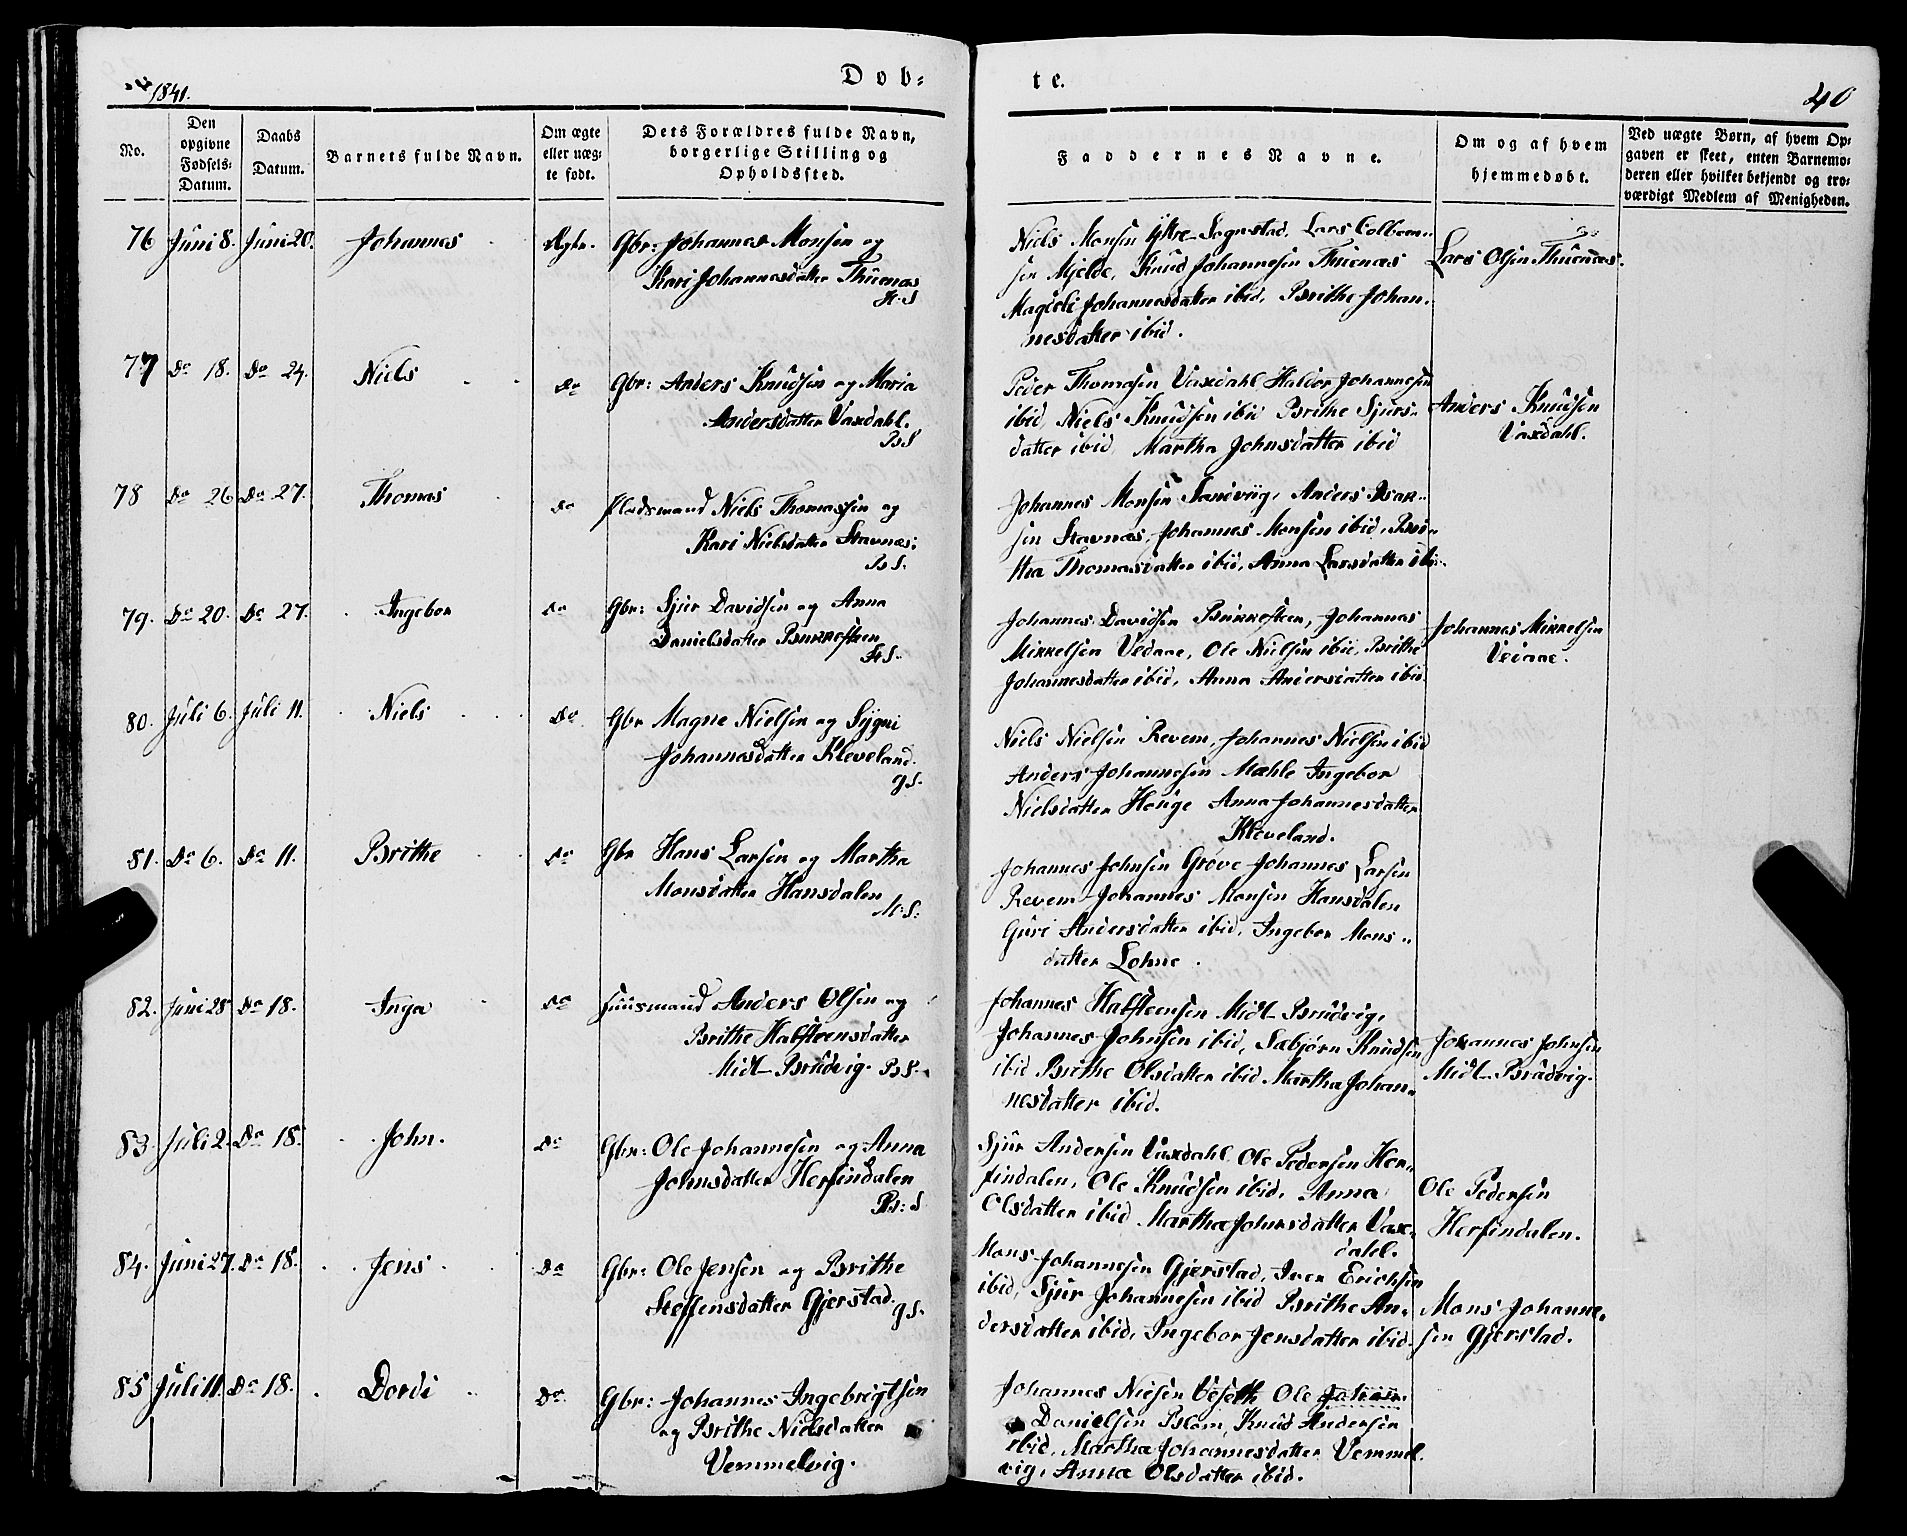 1841.
Døb-
te.
40
No.
Den opgivne Fødsels-Datum.
Daabs Datum.
Barnets fulde Navn.
Om ægte eller uæg-te født.
Dets Forældres fulde Navn, borgerlige Stilling og Opholdssted.
Faddernes Navne.
Om og af hvem hjemmedøbt.
Ved uægte Børn, af hvem Op-gaven er skeet, enten Barnemo-deren eller hvilket bekjendt og tro-værdigt Medlem af Menigheden.
76 Juni 8. Juni 20. Johannes Ægte. Gbr: Johannes Monsen og
Kari Johannesdatter Thuenæs
H:S
Niels Monsen Yttre Sognstad, Lars Colbeen-
sen Mjelde, Knud Johannesen Thuenæs
Magieli Johannesdatter ibid, Brithe Johan-
nesdatter ibid.
Lars Olsen Thuenæs.
77 Do 18. Do 24. Niels Do Gbr: Anders Knudsen og Maria
Andersdatter Vaxdahl.
B S
Peder Thomasen Vaxdahl Haldor Johannesen
ibid, Niels Knudsen ibid Brithe Sjurs-
datter ibid Martha Johnsdatter ibid
Anders Knudsen
Vaxdahl.
78 Do 26 Do 27. Thomas Do Pladsmand Niels Thomassen og
Kari Nielsdatter Stavnæs:
B S.
Johannes Monsen Sandviig, Anders Isak-
sen Stavnæs, Johannes Monsen ibid, Bri-
tha Thomasdatter ibid, Anna Larsdatter ibi:
79. Do 20. Do 27. Ingebor Do Gbr: Sjur Davidsen og Anna
Danielsdatter Bukkesteen
H S.
Johannes Davidsen Bukkesteen, Johannes
Mikkelsen Vedaae, Ole Nielsen ibid, Brithe
Johannesdatter ibid, Anna Andersdatter ibid.
Johannes Mikkelsen
Vedaae.
80. Juli 6. Juli 11. Niels Do Gbr Magne Nielsen og Sygni
Johannesdatter Kleveland.
G S.
Niels Nielsen Revem, Johannes Nielsen ibid
Anders Johannesen Mæhle Ingebor
Nielsdatter Houge Anna Johannesdatter
Kleveland.
81. Do 6. Do 11. Brithe Do Gbr Hans Larsen og Martha
Monsdatter Hansdalen
M:S:
Johannes Johnsen Grove Johannes Larsen
Revem Johannes Monsen Hansdalen
Guri Andersdatter ibid, Ingebor Mons-
datter Lohne.
82. Juni 28 Do 18. Inga Do Huusmand Anders Olsen og
Brithe Halfsteensdatter
Midt-Brudvig. B S.
Johannes Halfsteensen Midt-Brudvig,
Johannes Johnsen ibid, Sæbjørn Knudsen
ibid Brithe Olsdatter ibid Martha Johan-
nesdatter ibid.
Johannes Johnsen
Midt-Brudvig.
83. Juli 2. Do 18. John. Do Gbr: Ole Johannesen og Anna
Johnsdatter Herfindalen
B: S
Sjur Andersen Vaxdahl Ole Pedersen Her-
findalen, Ole Knudsen ibid, Anna
Olsdatter ibid Martha Johnsdatter Vax-
dahl.
Ole Pedersen
Herfindalen.
84. Juni 27. Do 18. Jens Do Gbr: Ole Jensen og Brithe
Steffensdatter Gjerstad.
G S.
Mons Johannesen Gjerstad, Iver Erichsen
ibid, Sjur Johannesen ibid Brithe An-
dersdatter ibid, Ingebor Jensdatter ibid.
Mons Johanne-
sen Gjerstad.
85 Juli 11. Do 18. Dordi Do. Gbr: Johannes Ingebrigtsen
og Brithe Nielsdatter
Vemmelvig.
Johannes Nielsen Veseth Ole
Danielsen Blom, Knud Andersen
ibid, Martha Johannesdatter Vemmel-
vig, Anna Olsdatter ibid.